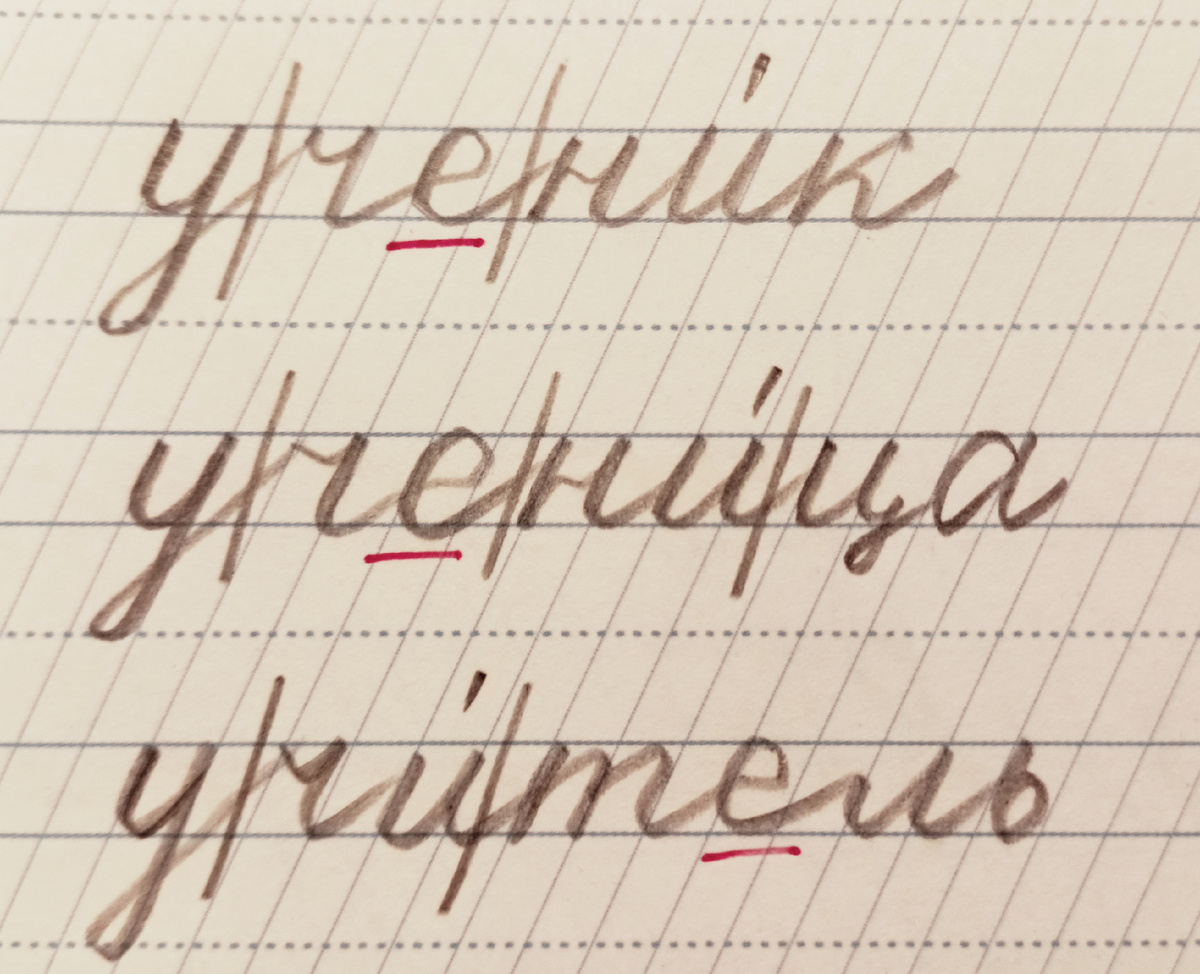 у/че/ни́к
у/че/ни́/ца
у/чи́/тель